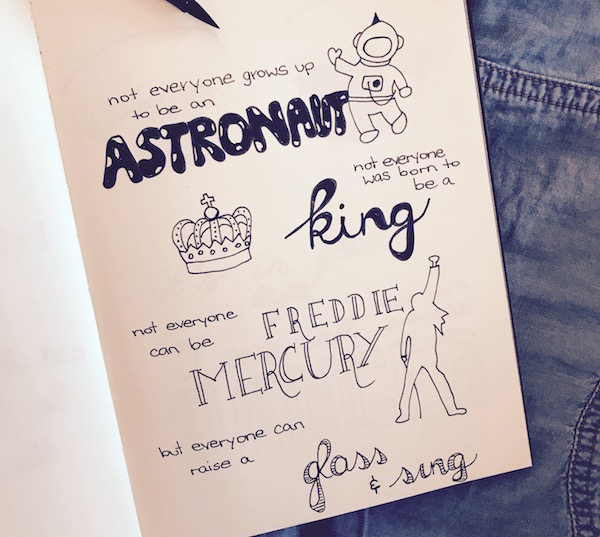 not everyone grows up
to be an
ASTRONAUT
not everyone
was born to
be a
king
not everyone
can be
FREDDIE
MERCURY
but everyone can
raise a
glass
& sing